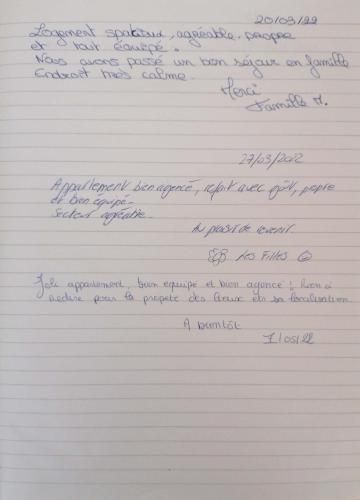 20/03/22
Logement spacieux, agréable, propre
et tout équipé.
Nous avons passé un bon séjour en famille
Endroit très calme.
Merci
Famille M.
27/03/2022
Appartement bien agencé, refait avec goût, propre
et bien équipé.
Secteur agréable.
Au plaisir de revenir
Les Filles
Joli appartement, bien équipé et bien agencé ! Rien à
redire pour la propreté des lieux et sa localisation
A bientôt
1/05/22